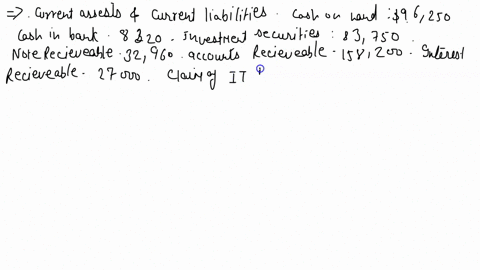 =>. Current assests & current liabilities. Cash on hand : $96,250
Cash in bank. 8320. Investment securities : 83,750.
Note Recieveable. 32,960. accounts Recieveable. 158,200. Interest
Recieveable. 27000. Claim of IT